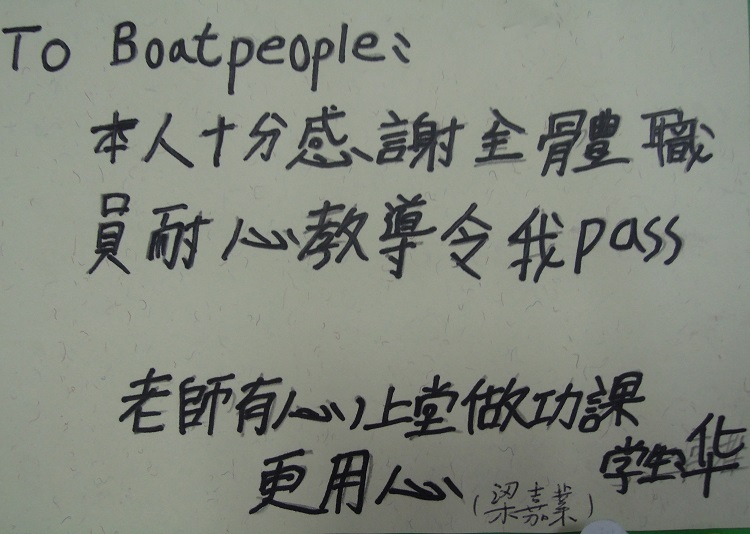 To Boatpeople:
本人十分感謝全體職
員耐心教導令我pass
老師有心上堂做功課
更用心
學生華
(梁嘉業)